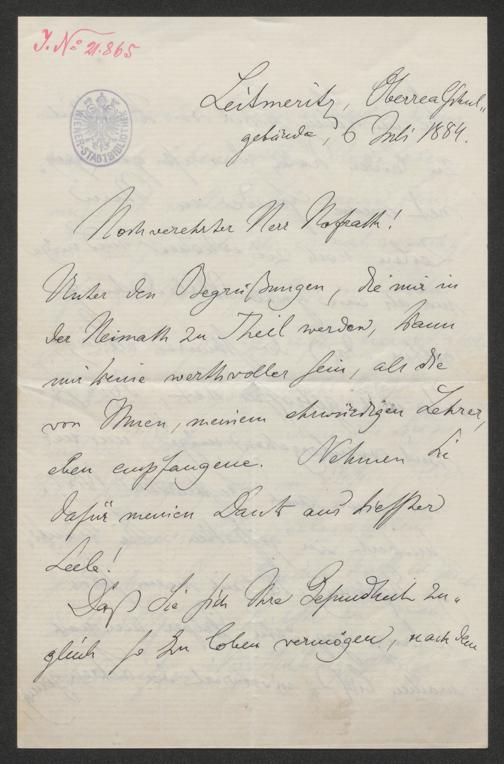 J. No 21.865
WIENER-STADTBIBLIOTHEK
Leitmeritz, Oberrealschul-
gebäude, 6 Juli 1884.
Hochverehrter Herr Hofrath!
Unter den Begrüßungen, die mir in
der Heimath zu Theil werden, kann
mir keine werthvoller sein, als die
von Ihnen, meinem ehrwürdigen Lehrer,
eben empfangene. Nehmen Sie
dafür meinen Dank aus tiefster
Seele!
Daß Sie sich Ihre Gesundheit zu-
gleich so zu loben vermögen, nach dem